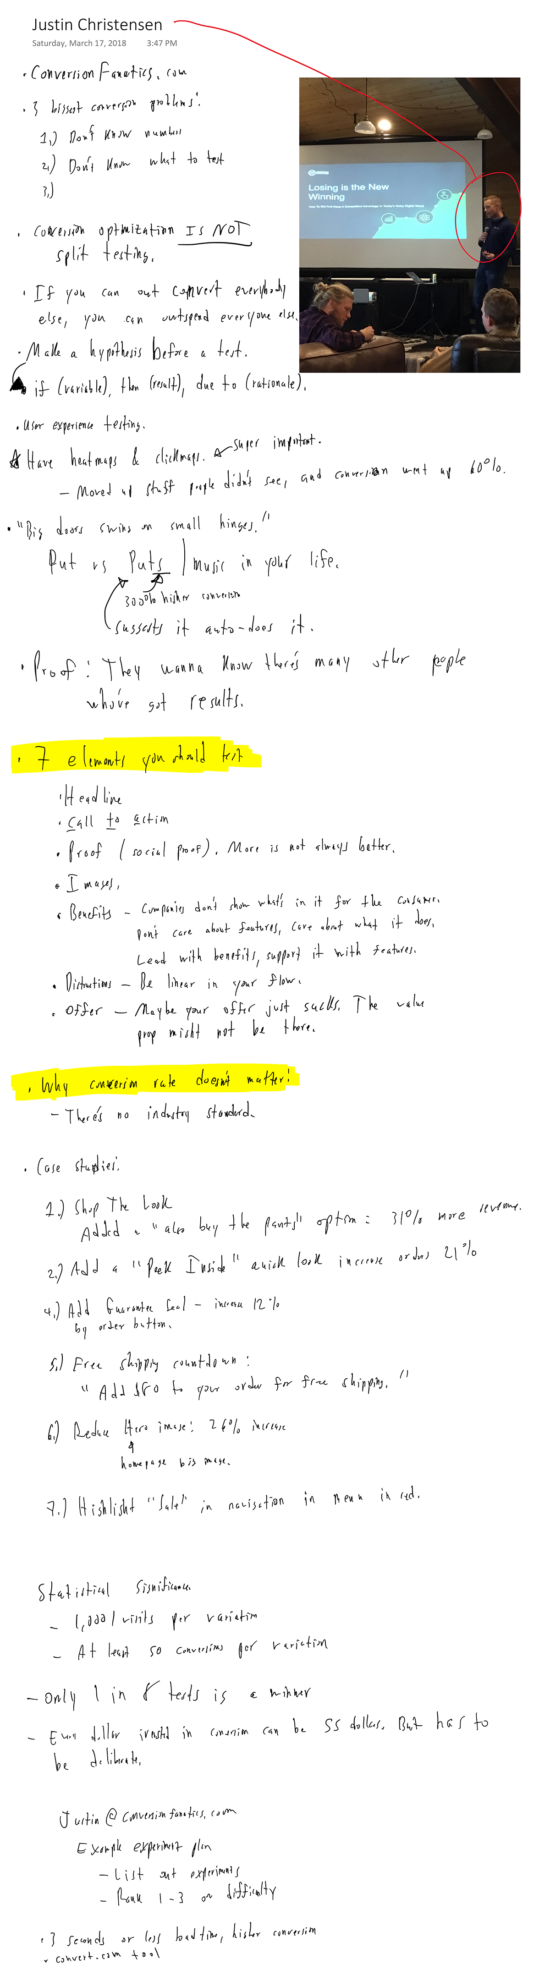 Justin Christensen
Saturday, March 17, 2018 3:47 PM
• ConversionFanatics.com
• 3 biggest conversion problems:
1.) Don't know numbers
2.) Don't know what to test
3.)
• Conversion optimization IS NOT
split testing.
• If you can out convert everybody
else, you can outspend everyone else.
• Make a hypothesis before a test.
if (variable), then (result), due to (rationale).
• User experience testing.
Have heatmaps & clickmaps. super important.
- Moved up stuff people didn't see, and conversion went up 60%.
• "Big doors swing on small hinges."
Put vs Puts | music in your life.
300% higher conversion
suggests it auto-does it.
• Proof: They wanna know there's many other people
who've got results.
• 7 elements you should test
• Headline
• Call to action
• Proof (social proof). More is not always better.
• Images.
• Benefits - Companies don't show what's in it for the consumer.
Don't care about features, care about what it does.
Lead with benefits, support it with features.
• Distractions - Be linear in your flow.
• Offer - Maybe your offer just sucks. The value
prop might not be there.
• Why conversion rate doesn't matter:
- There's no industry standard.
• Case studies:
1.) Shop The Look
Added a "also buy the pants" option: 31% more revenue.
2.) Add a "Peek Inside" quick look increase orders 21%
4.) Add Guarantee Seal - increase 12%
by order button.
5.) Free shipping countdown:
"Add $80 to your order for free shipping."
6.) Reduce Hero image: 26% increase
homepage big image.
7.) Highlight "Sale" in navigation in menu in red.
Statistical Significance
- 1,000 visits per variation
- At least 50 conversions per variation
- Only 1 in 8 tests is a winner
- Every dollar invested in conversion can be 55 dollars. But has to
be deliberate.
Justin@conversionfanatics.com
Example experiment plan
- List out experiments
- Rank 1-3 on difficulty
• 3 seconds or less load time, higher conversion
• convert.com tool
Losing is the New
Winning